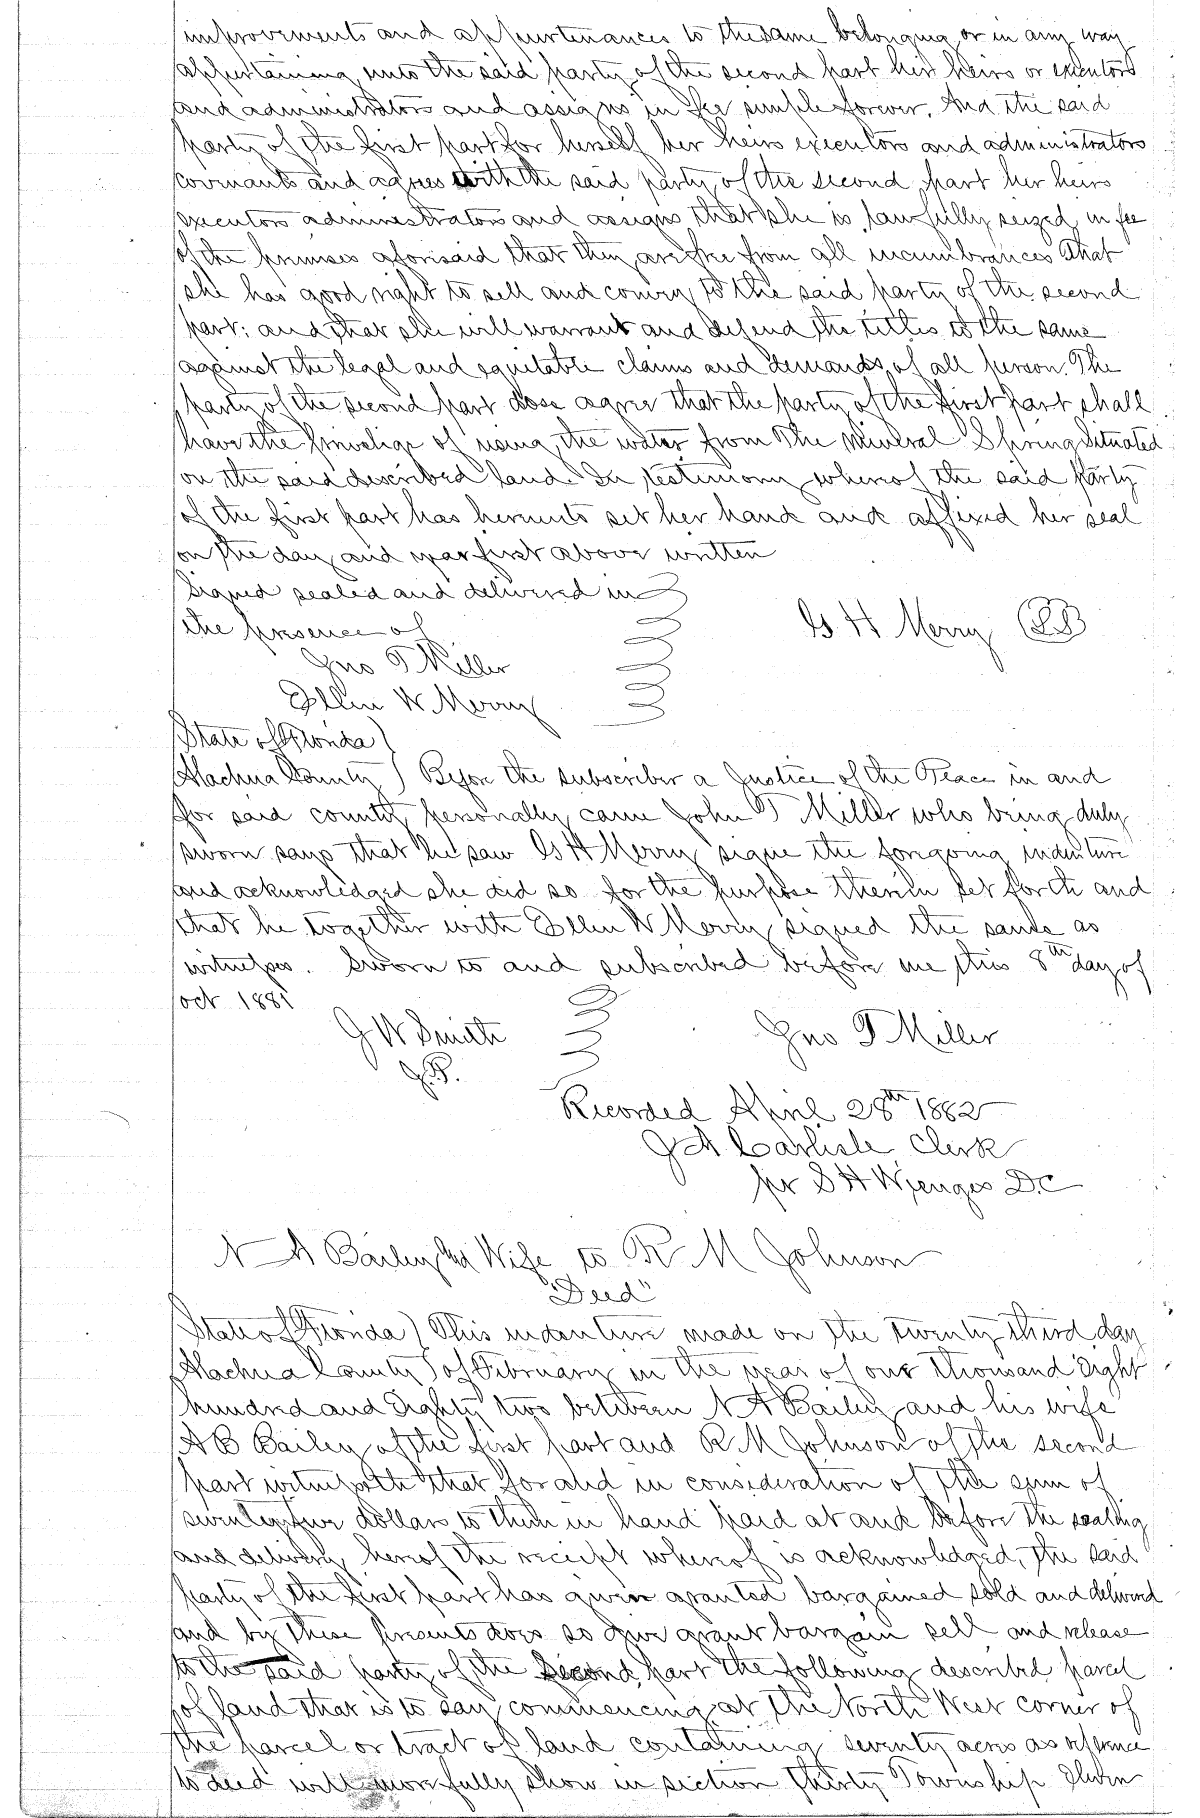 improvements and appurtenances to the same belonging or in any way
appertaining unto the said party of the second part her heirs or executors
and administrators and assigns in fee simple forever. And the said
party of the first part for herself her heirs executors and administrators
covenants and agrees with the said party of the second part her heirs
executors administrators and assigns that she is lawfully seized in fee
of the premises aforesaid that they are free from all incumbrances that
she has good right to sell and convey to the said party of the second
part; and that she will warrant and defend the titles to the same
against the legal and equitable claims and demands of all person. The
party of the second part dose agree that the party of the first part shall
have the privalige of using the water from The Mineral Spring Situated
on the said described land. In testimony whereof the said party
of the first part has hereunto set her hand and affixed her seal
on the day and year first above written
Signed sealed and delivered in
the presence of
G H Merry
Jno T Miller
Ellen W Merry
State of Florida )
Alachua County ) Before the subscriber a Justice of the Peace in and
for said county personally came John T Miller who being duly
sworn says that he saw G H Merry signe the foregoing indenture
and acknowledged she did so for the purpose therein set forth and
that he together with Ellen W Merry signed the same as
witnesses. Sworn to and subscribed before me this 8th day of
oct 1881
J W Smith Jno T Miller
J.P.
Recorded April 28th 1882
J A Carlisle Clerk
pr S H Wienges D.C
N A Bailey and Wife to R M Johnson
"Deed"
State of Florida ) This indenture made on the twenty third day
Alachua County ) of February in the year of our thousand Eight
hundred and Eighty two between N A Bailey and his wife
A B Bailey of the first part and R M Johnson of the second
part witnesseth that for and in consideration of the sum of
seventy five dollars to them in hand paid at and before the sealing
and delivery hereof the receipt whereof is acknowledged, the said
party of the first part has given granted bargained sold and delivered
and by these presents does so give grant bargain sell and release
to the said party of the second part the following described parcel
of land that is to say commencing at the North West corner of
the parcel or tract of land containing seventy acres as reference
to deed will more fully show in section thirty Township Eleven